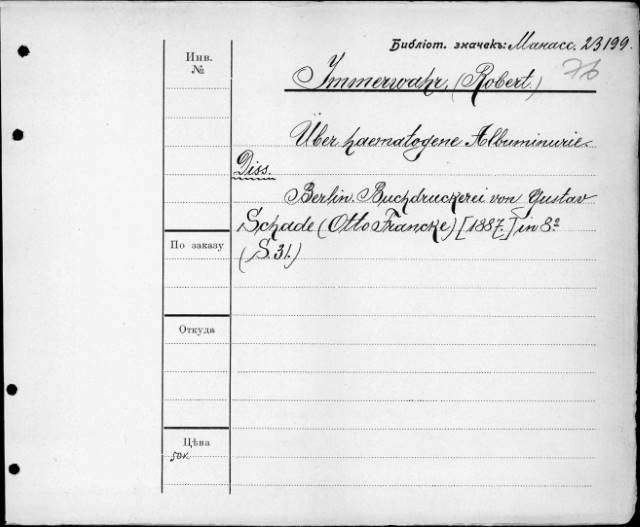 Библіот. значекъ: Манасс. 23199.
Инв.
№
76
Immerwahr, (Robert.)
Über haematogene Albuminurie.
Diss.
Berlin. Buchdruckerei von Gustav
Schade (Otto Francke) [1887.] in 8º
(S. 31.)
По заказу
Откуда
Цѣна
50к.